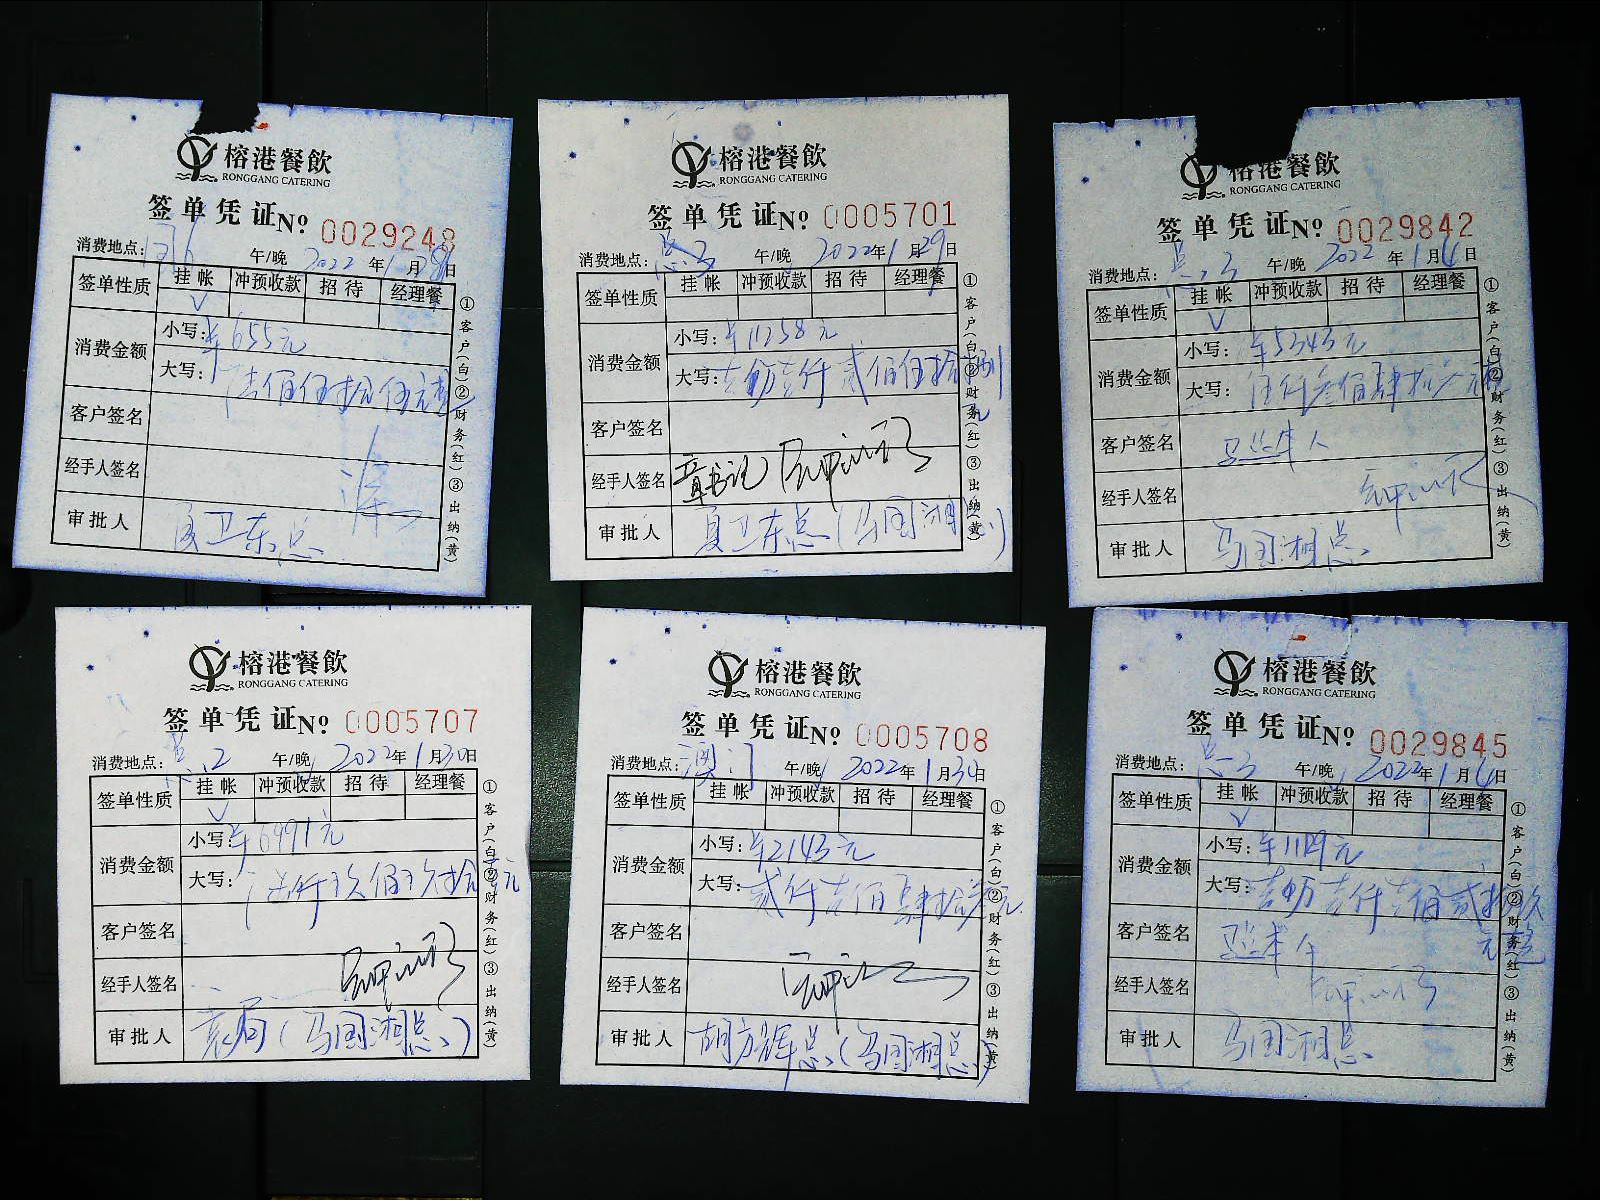 榕港餐飲
RONGGANG CATERING
签单凭证 No 0029248
消费地点: 午/晚 2022年1月29日
签单性质 挂帐 冲预收款 招待 经理餐
√
消费金额 小写: ¥655元
大写: 陆佰伍拾伍元整
客户签名
经手人签名
审批人 夏卫东总
①客户(白)②财务(红)③出纳(黄)
榕港餐飲
RONGGANG CATERING
签单凭证 No 0005701
消费地点: 总3 午/晚 2022年1月29日
签单性质 挂帐 冲预收款 招待 经理餐
消费金额 小写: ¥11258元
大写: 壹万壹仟贰佰伍拾捌元
客户签名
经手人签名 章书记
审批人 夏卫东总(马国湘总)
①客户(白)②财务(红)③出纳(黄)
榕港餐飲
RONGGANG CATERING
签单凭证 No 0029842
消费地点: 总23 午/晚 2022年1月4日
签单性质 挂帐 冲预收款 招待 经理餐
√
消费金额 小写: ¥5343元
大写: 伍仟叁佰肆拾叁元整
客户签名
经手人签名
审批人 马国湘总
①客户(白)②财务(红)③出纳(黄)
榕港餐飲
RONGGANG CATERING
签单凭证 No 0005707
消费地点: 总2 午/晚 2022年1月30日
签单性质 挂帐 冲预收款 招待 经理餐
√
消费金额 小写: ¥6991元
大写: 陆仟玖佰玖拾壹元
客户签名
经手人签名
审批人 (马国湘总)
①客户(白)②财务(红)③出纳(黄)
榕港餐飲
RONGGANG CATERING
签单凭证 No 0005708
消费地点: 澳门 午/晚 2022年1月30日
签单性质 挂帐 冲预收款 招待 经理餐
消费金额 小写: ¥2143元
大写: 贰仟壹佰肆拾叁元
客户签名
经手人签名
审批人 胡方辉总(马国湘总)
①客户(白)②财务(红)③出纳(黄)
榕港餐飲
RONGGANG CATERING
签单凭证 No 0029845
消费地点: 总23 午/晚 2022年1月6日
签单性质 挂帐 冲预收款 招待 经理餐
√
消费金额 小写: ¥11129元
大写: 壹万壹仟壹佰贰拾玖
元整
客户签名
经手人签名
审批人 马国湘总
①客户(白)②财务(红)③出纳(黄)